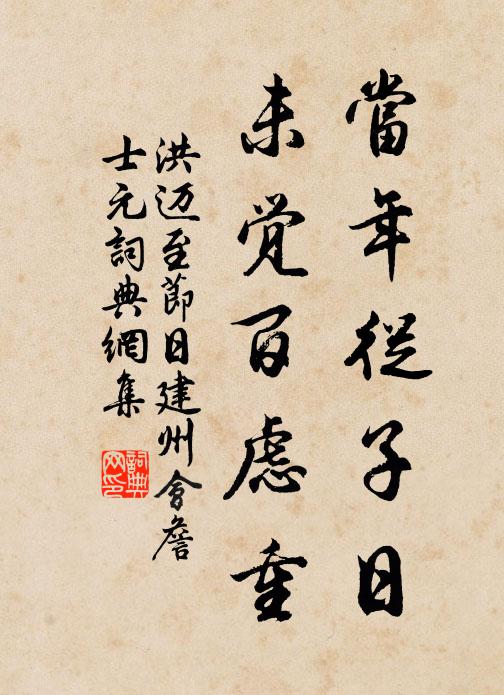 當年從子日
未觉百慮重
洪迈至節日建州會詹
士元詞典網集
詞典网印